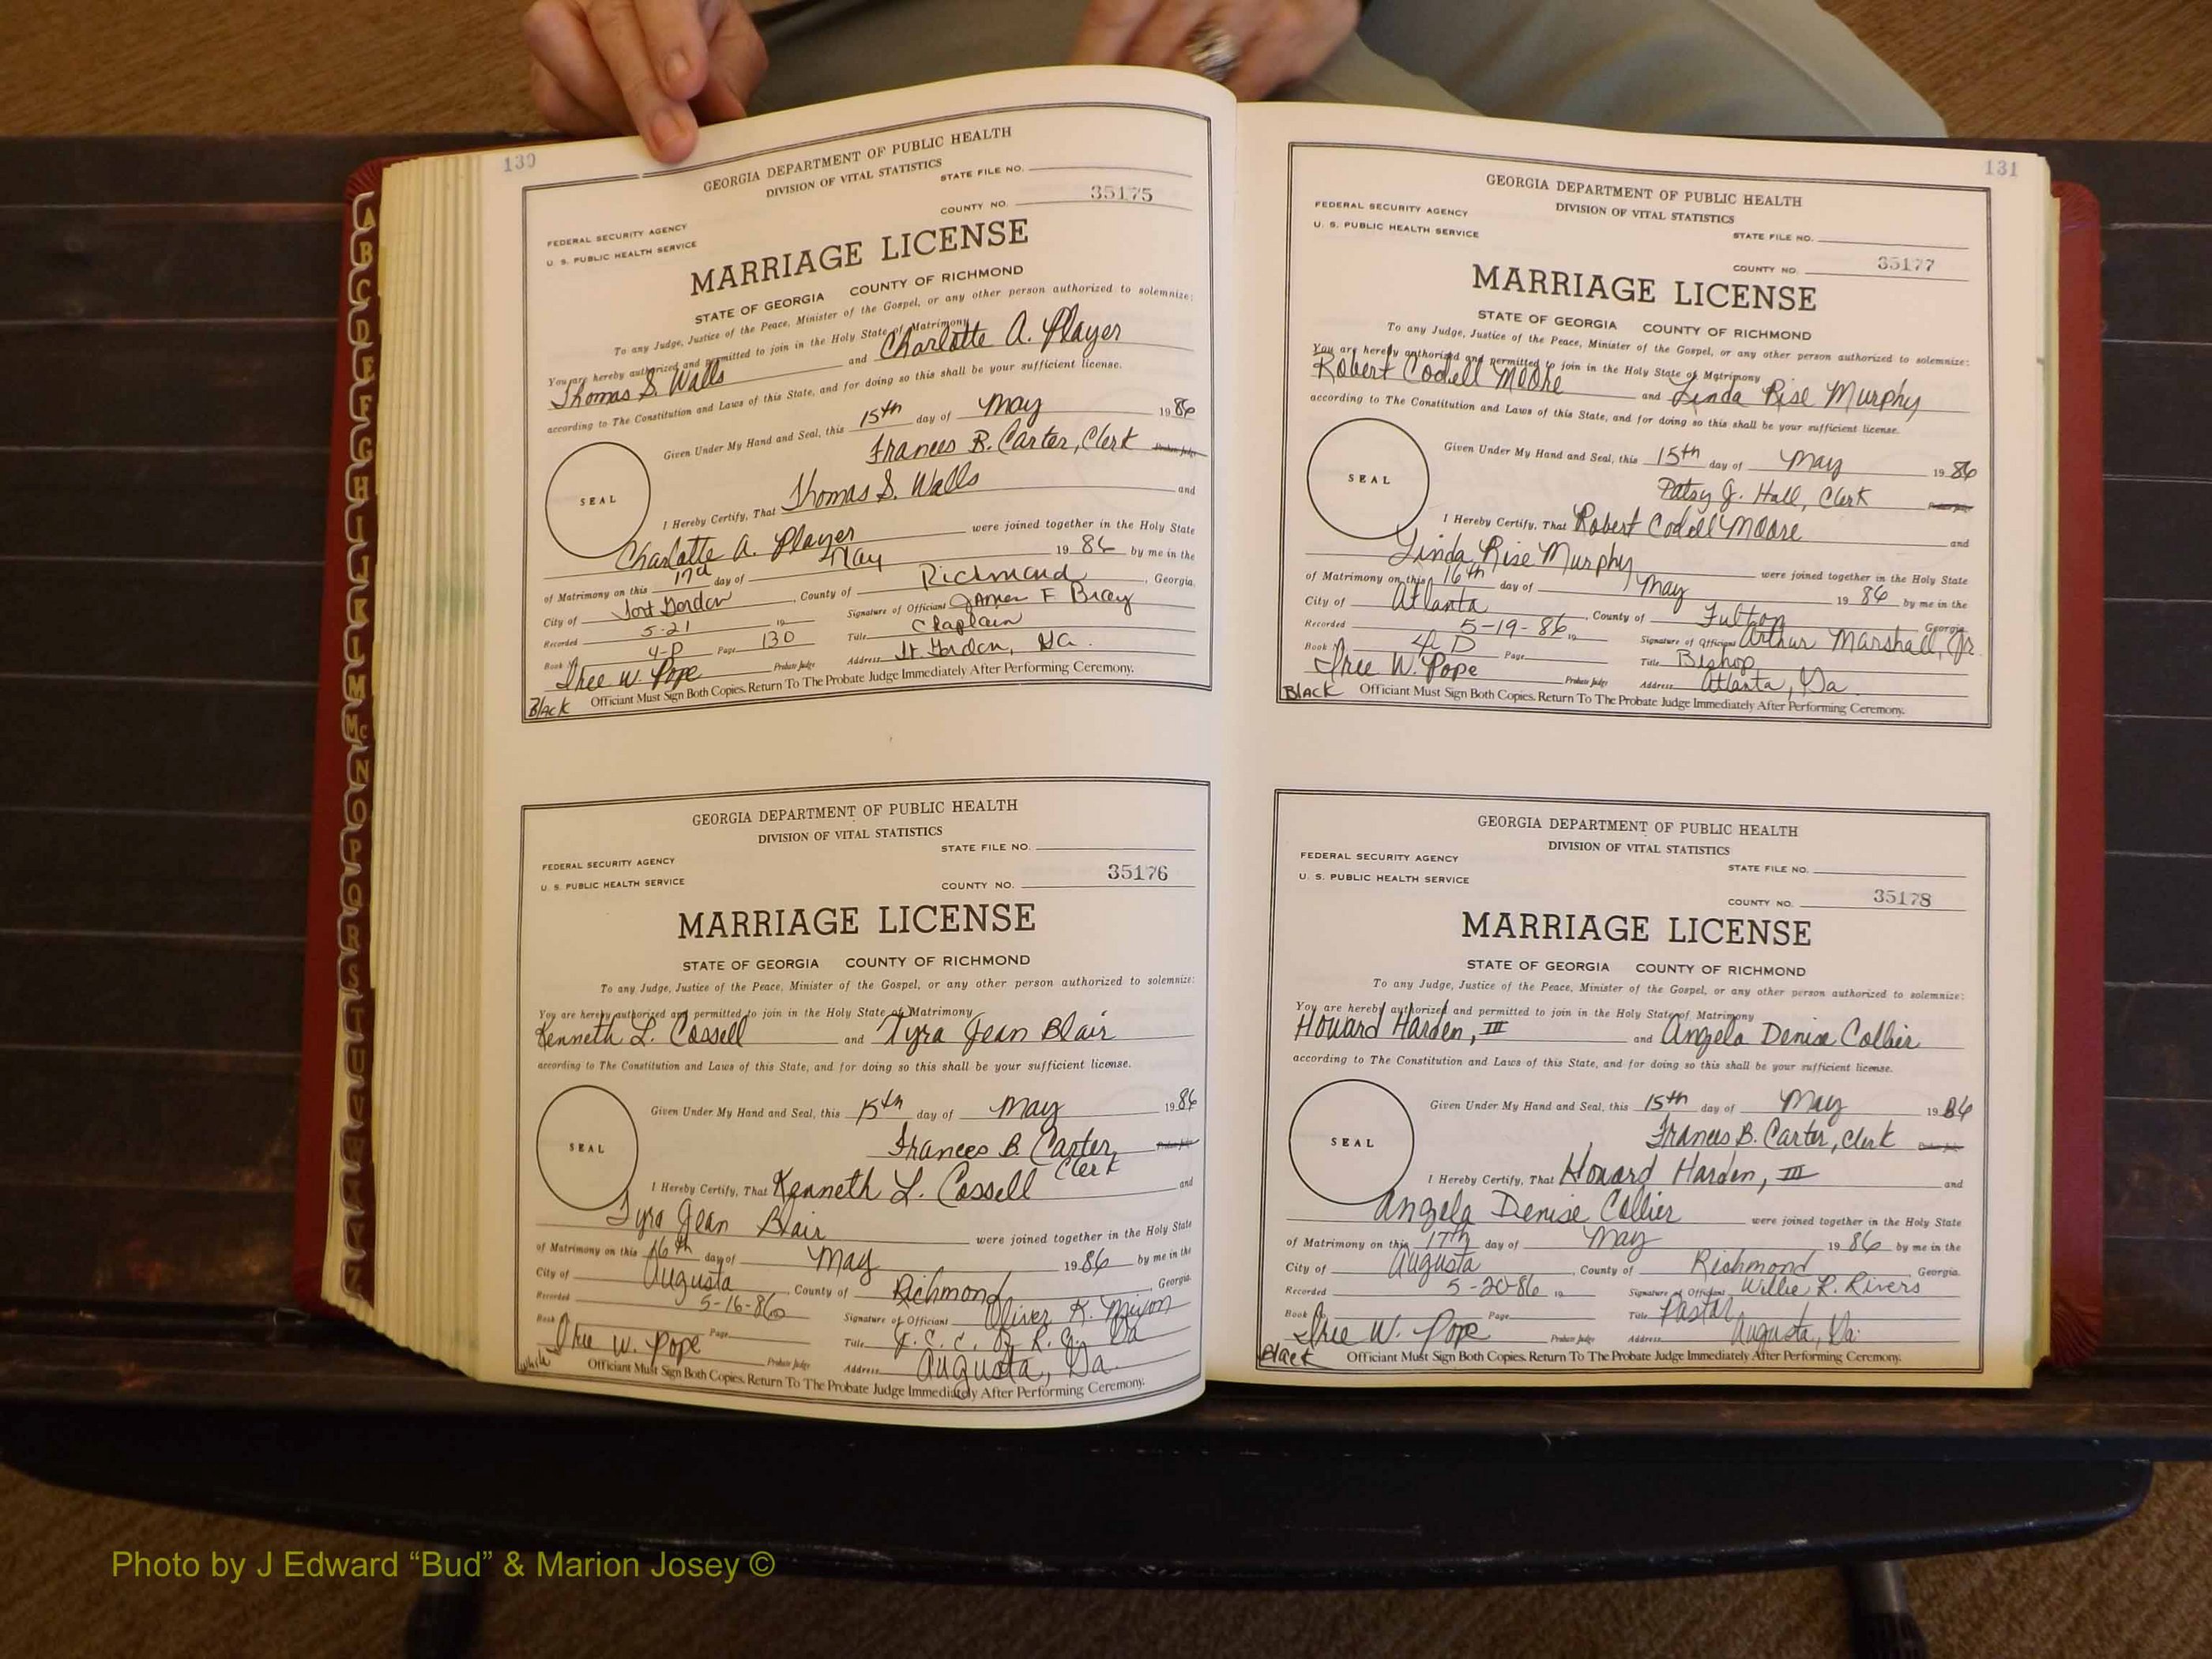 130
GEORGIA DEPARTMENT OF PUBLIC HEALTH
DIVISION OF VITAL STATISTICS
STATE FILE NO.
FEDERAL SECURITY AGENCY
COUNTY NO. 35175
U. S. PUBLIC HEALTH SERVICE
MARRIAGE LICENSE
STATE OF GEORGIA COUNTY OF RICHMOND
To any Judge, Justice of the Peace, Minister of the Gospel, or any other person authorized to solemnize:
You are hereby authorized and permitted to join in the Holy State of Matrimony
Thomas S. Walls and Charlotte A. Player
according to The Constitution and Laws of this State, and for doing so this shall be your sufficient license.
Given Under My Hand and Seal, this 15th day of May 1986
Frances B. Carter, Clerk Probate Judge
SEAL
I Hereby Certify, That Thomas S. Walls and
Charlotte A. Player were joined together in the Holy State
of Matrimony on this 17th day of May 1986 by me in the
City of Fort Gordon, County of Richmond, Georgia.
Recorded 5-21 19 Signature of Officiant James F Bray
Book 4-P Page 130 Title Chaplain
Ihee W. Pope Probate Judge Address Ft. Gordon, Ga.
Black Officiant Must Sign Both Copies. Return To The Probate Judge Immediately After Performing Ceremony.
GEORGIA DEPARTMENT OF PUBLIC HEALTH
DIVISION OF VITAL STATISTICS
STATE FILE NO.
FEDERAL SECURITY AGENCY
COUNTY NO. 35176
U. S. PUBLIC HEALTH SERVICE
MARRIAGE LICENSE
STATE OF GEORGIA COUNTY OF RICHMOND
To any Judge, Justice of the Peace, Minister of the Gospel, or any other person authorized to solemnize:
You are hereby authorized and permitted to join in the Holy State of Matrimony
Kenneth L. Cassell and Tyra Jean Blair
according to The Constitution and Laws of this State, and for doing so this shall be your sufficient license.
Given Under My Hand and Seal, this 15th day of May 1986
Frances B. Carter, Probate Judge
Clerk
SEAL
I Hereby Certify, That Kenneth L. Cassell and
Tyra Jean Blair were joined together in the Holy State
of Matrimony on this 16th day of May 1986 by me in the
City of Augusta County of Richmond Georgia.
Recorded 5-16-86 Signature of Officiant Oliver K. Mixon
Book Page Title J. C. C. R. C. Ga
Ihee W. Pope Probate Judge Address Augusta, Ga.
White Officiant Must Sign Both Copies. Return To The Probate Judge Immediately After Performing Ceremony.
131
GEORGIA DEPARTMENT OF PUBLIC HEALTH
DIVISION OF VITAL STATISTICS
FEDERAL SECURITY AGENCY
STATE FILE NO.
U. S. PUBLIC HEALTH SERVICE
COUNTY NO. 35177
MARRIAGE LICENSE
STATE OF GEORGIA COUNTY OF RICHMOND
To any Judge, Justice of the Peace, Minister of the Gospel, or any other person authorized to solemnize:
You are hereby authorized and permitted to join in the Holy State of Matrimony
Robert Codell Moore and Linda Rise Murphy
according to The Constitution and Laws of this State, and for doing so this shall be your sufficient license.
Given Under My Hand and Seal, this 15th day of May 1986
Patsy J. Hall, Clerk Probate Judge
SEAL
I Hereby Certify, That Robert Codell Moore and
Linda Rise Murphy were joined together in the Holy State
of Matrimony on this 16th day of May 1986 by me in the
City of Atlanta, County of Fulton Georgia.
Recorded 5-19-86 19 Signature of Officiant Arthur Marshall, Jr.
Book 4 P Page Title Bishop
Ihee W. Pope Probate Judge Address Atlanta, Ga
Black Officiant Must Sign Both Copies. Return To The Probate Judge Immediately After Performing Ceremony.
GEORGIA DEPARTMENT OF PUBLIC HEALTH
DIVISION OF VITAL STATISTICS
FEDERAL SECURITY AGENCY
STATE FILE NO.
U. S. PUBLIC HEALTH SERVICE
COUNTY NO. 35178
MARRIAGE LICENSE
STATE OF GEORGIA COUNTY OF RICHMOND
To any Judge, Justice of the Peace, Minister of the Gospel, or any other person authorized to solemnize:
You are hereby authorized and permitted to join in the Holy State of Matrimony
Howard Harden, III and Angela Denise Collier
according to The Constitution and Laws of this State, and for doing so this shall be your sufficient license.
Given Under My Hand and Seal, this 15th day of May 1986
Frances B. Carter, Clerk Probate Judge
SEAL
I Hereby Certify, That Howard Harden, III and
Angela Denise Collier were joined together in the Holy State
of Matrimony on this 17th day of May 1986 by me in the
City of Augusta, County of Richmond, Georgia.
Recorded 5-20-86 19 Signature of Officiant Willie R. Rivers
Book Page Title Pastor
Ihee W. Pope Probate Judge Address Augusta, Ga.
Black Officiant Must Sign Both Copies. Return To The Probate Judge Immediately After Performing Ceremony.
A
B
C
D
E
F
G
H
I
J
K
L
M
Mc
N
O
P
Q
R
S
T
U
V
Photo by J Edward “Bud” & Marion Josey ©